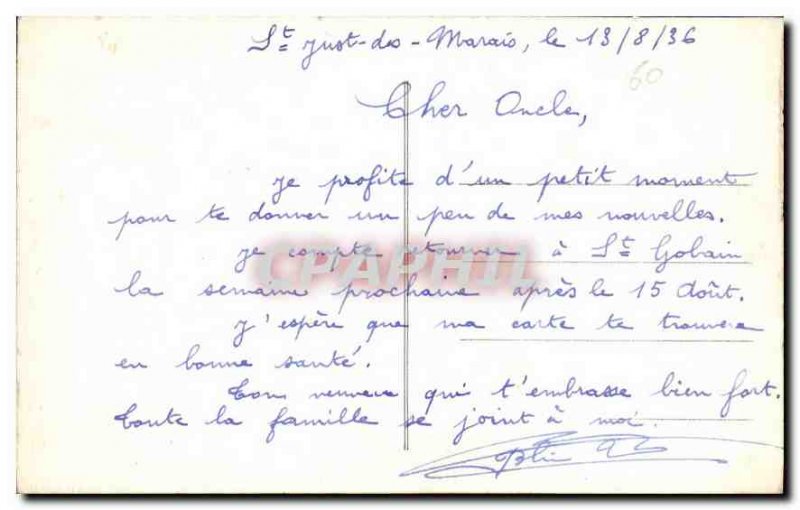 St Just-des-Marais, le 13/8/36
60
Cher Oncle,
Je profite d'un petit moment
pour te donner un peu de mes nouvelles.
Je compte retourner à St Gobain
la semaine prochaine après le 15 Août.
J'espère que ma carte te trouvera
en bonne santé.
Ton neveu qui t'embrasse bien fort.
Toute la famille se joint à moi.
CPAPHIL